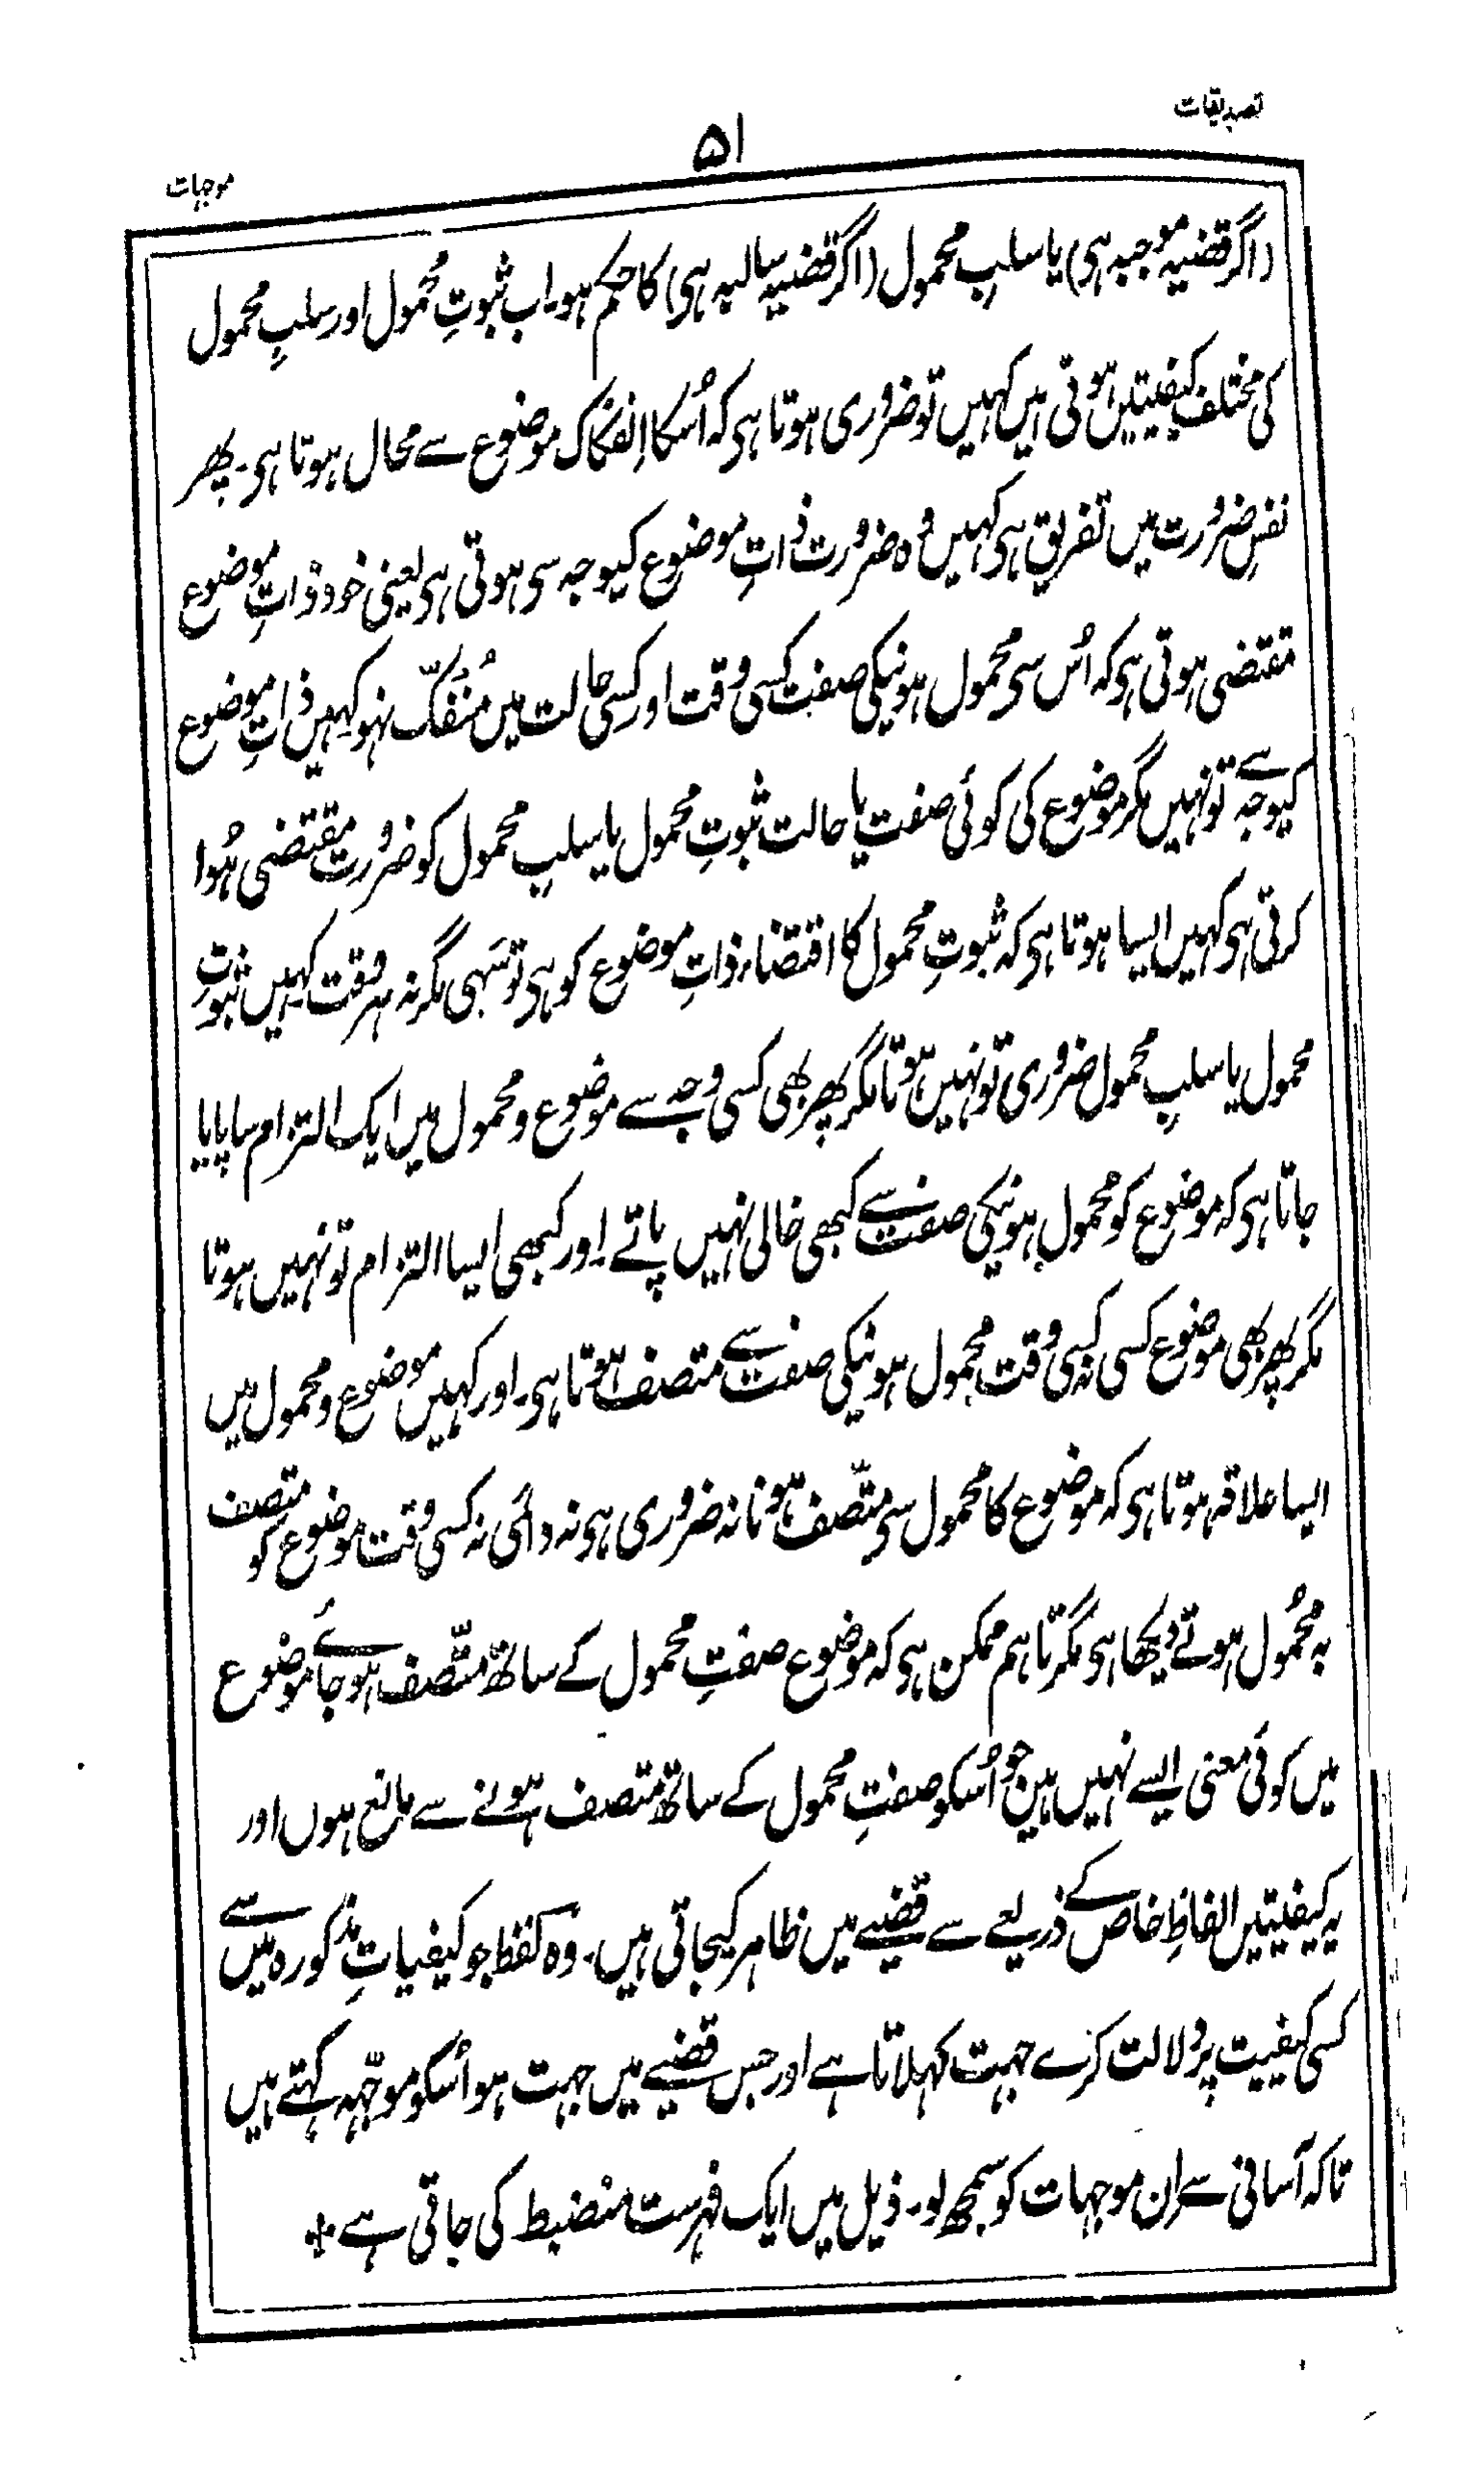 تصدیقات
۵۱
موجہات
(اگر قضیہ موجبہ ہی) یا سلبِ محمول (اگر قضیہ سالبہ ہی) کا حکم ہو۔ اب ثبوتِ محمول اور سلبِ محمول
کی مختلف کیفیتیں ہوتی ہیں کہیں تو ضروری ہوتا ہی کہ اُسکا اِنفکاک موضوع سے محال ہوتا ہی۔ پھر
نفسِ ضرورت میں تفریق ہی کہیں وہ ضرورت ذاتِ موضوع کیوجہ سی ہوتی ہی یعنی خود ذاتِ موضوع
مقتضی ہوتی ہی کہ اُس سی محمول ہونیکی صفت کسی وقت اور کسی حالت میں مُنفکّ نہو کہیں ذاتِ موضوع
کیوجہ سے تو نہیں مگر موضوع کی کوئی صفت یا حالت ثبوتِ محمول یا سلبِ محمول کو ضرورت مقتضی ہُوا
کرتی ہی کہیں ایسا ہوتا ہی کہ ثبوتِ محمول کا اقتضاء ذاتِ موضوع کو ہی تو سَہی مگر نہ ہر وقت کہیں ثبوتِ
محمول یا سلبِ محمول ضروری تو نہیں ہوتا مگر پھر بھی کسی وجہ سے موضوع و محمول میں ایک التزام سا پایا
جاتا ہی کہ موضوع کو محمول ہونیکی صفت سے کبھی خالی نہیں پاتے۔ اور کبھی ایسا التزام تو نہیں ہوتا
مگر پھر بھی موضوع کسی نہ کسی وقت محمول ہونیکی صفت سے متصف ہوتا ہی۔ اور کہیں موضوع و محمول میں
ایسا علاقہ ہوتا ہی کہ موضوع کا محمول سی متّصف ہونا نہ ضروری ہی نہ دائمی نہ کسی وقت موضوع کو متصف
بہ محُمول ہوتے دیکھا ہی مگر تاہم ممکن ہی کہ موضوع صفتِ محمول کے ساتھ متّصف ہو جائے موضوع
میں کوئی معنی ایسے نہیں ہیں جو اُسکو صفتِ محمول کے ساتھ متصف ہونے سے مانع ہوں اور
یہ کیفیتیں الفاظِ خاص کے ذریعے سے قضیے میں ظاہر کیجاتی ہیں۔ وہ لفظ جو کیفیاتِ مذکورہ میں سے
کسی کیفیت پر دلالت کرے جہت کہلاتا ہے اور جس قضیے میں جہت ہو اُسکو موجّہہ کہتے ہیں
تاکہ آسانی سے اِن موجہات کو سمجھ لو۔ ذیل میں ایک فہرست منضبط کی جاتی ہے ۔